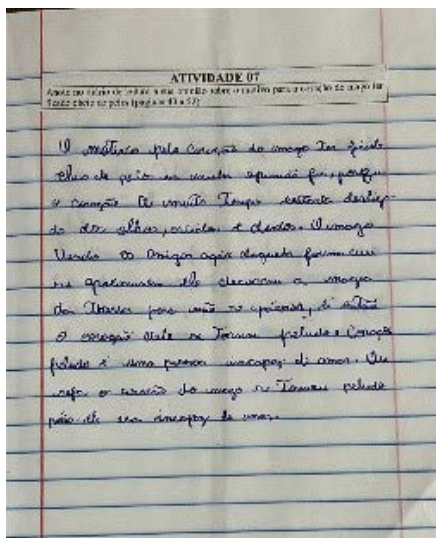 ATIVIDADE 07
Anote no diário de leitura a sua opinião sobre o motivo para o coração do mago ter
ficado cheio de pelos (páginas 43 a 52)
O motivo pelo coração do mago ter ficado
cheio de pelo na minha opinião foi, porque
o coração muito Tempo estava desliga-
do dos olhos, ouvidos e dedos. O mago
Vendo os Amigos agir daquela forma
se apaixonar ele a magia
das Trevas para não se apaixonar, di então
o coração dele se Tornou peludo e Coração
peludo é uma pessoa incapaz di amar. Ou
seja o coração do mago se Tornou peludo
pois ele era incapaz de amar.